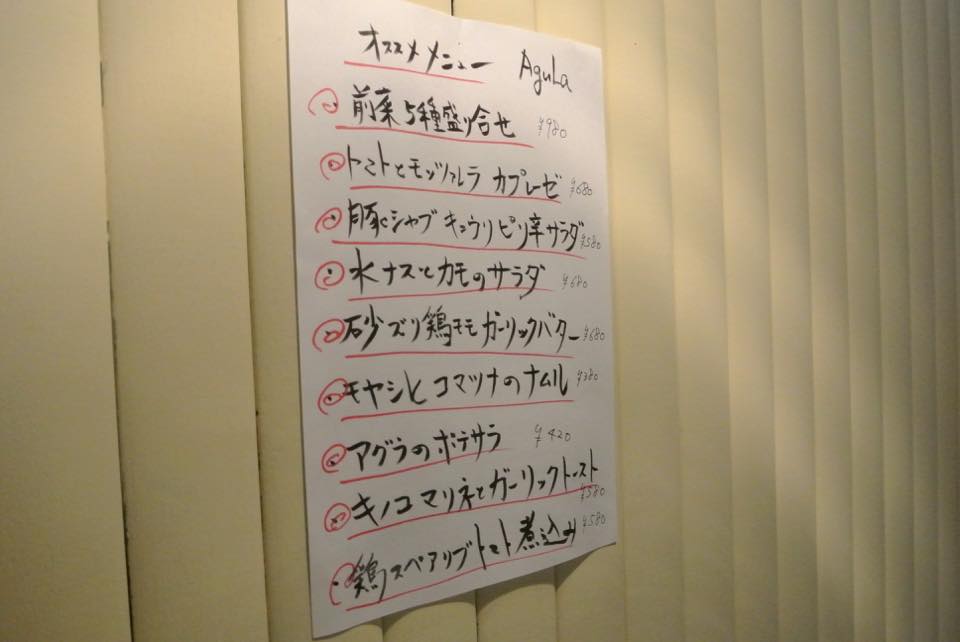 オススメメニュー AguLa
前菜5種盛り合せ ¥980
トマトとモッツァレラ カプレーゼ ¥680
豚しシャブ キュウリ ピリ辛サラダ ¥580
水ナスとカモのサラダ ¥680
砂ズリ鶏モモ ガーリックバター ¥680
モヤシと コマツナのナムル ¥380
アグラのポテサラ ¥420
キノコマリネとガーリックトースト ¥580
鶏スペアリブトマト煮込み ¥580